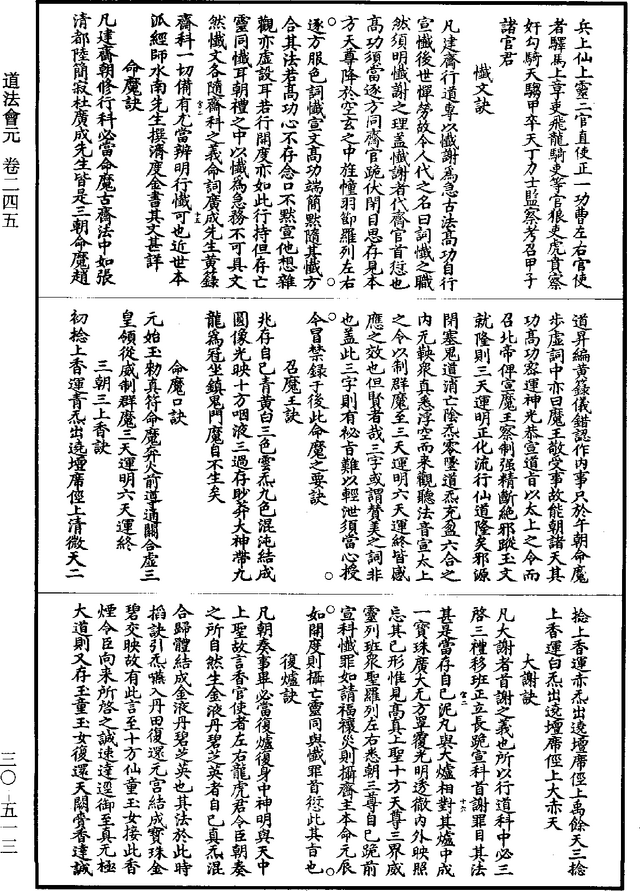 道法會元 卷二四五
兵上仙上靈二官直使正一功曹左右官使
者驛馬上章吏飛龍騎吏等官狼吏虎賁察
奸勾騎天騶甲卒天丁力士監察考召甲子
諸官君
懺文訣
凡建齋行道專以懺謝為急古法高功自行
宣懺後世憚勞故令人代之名曰詞懺之職
然須明懺謝之理蓋懺謝者代齋官首愆也
高功須當逐方同齋官跪伏閉目思存見本
方天尊降於空玄之中旌幢羽節羅列左右
逐方服色詞懺宣文高功端簡默隨其懺方
合其法若高功心不存念口不默宣他想雜
觀亦虛設耳若行開度亦如此行持但存亡
靈同懺耳朝禮之中以懺為急務不可具文
然懺文各隨齋科之義命詞廣成先生黃籙
齋科一切備有尤當辨明行懺可也近世本
派經師水南先生撰濟度金書其文甚詳
命魔訣
凡建齋朝修行科必當命魔古齋法中如張
清都陸簡寂杜廣成先生皆是三朝命魔趙
道昇編黃籙儀錯認作內事只於午朝命魔
步虛詞中亦曰魔王敬受事故能朝諸天其
功高功密運神光恭宣道旨以太上之令而
召北帝俾宣魔王察制強精斷絕邪蹤玉文
就隆則三天運明正化流行仙道隆矣邪源
閉塞鬼道消亡陰炁零墜道炁充盈六合之
內无鞅衆真悉浮空而来觀聽法音宣太上
之令以制群魔至三天運明六天運終皆感
應之效也但賢者哉三字或謂贊美之詞非
也蓋此三字則有祕音難以輕泄須當心授
今冒禁錄于後此命魔之要訣
召魔王訣
兆存自己青黃白三色靈炁九色混沌結成
圓像光映十方咽液三過存眇莽大神帶九
龍為冠坐鎮鬼門魔自不生矣
命魔口訣
元始玉勑真符命魔莽火前導通關合虛三
皇領從威制群魔三天運明六天運終
三朝三上香訣
初捻上香運青炁出遶壇席徑上清微天二
捻上香運赤炁出遶壇席徑上禹餘天三捻
上香運白炁出遶壇席徑上大赤天
大謝訣
凡大謝者首謝之義也所以行道科中必三
啓三禮移班正立長跪宣科首謝罪目其法
甚是當存自己泥丸與大爐相對其爐中成
一寶珠廣大无方單覆光明透徹內外映照
忘其己形惟見高真上聖十方天尊三界威
靈列班衆聖羅列左右悉朝三尊自己跪前
宣科懺罪如請福禳災則攝齋主本命元辰
如開度則攝亡靈同與懺罪首愆此其旨也
復爐訣
凡朝奏事畢必當復爐復身中神明與天中
上聖故言香官使者左右龍虎君令臣朝奏
之所自然生金液丹碧芝英者自己真炁混
合歸體結成金液丹碧芝英也其法於此時
搯訣引炁嚥入丹田復還元宮結成寶珠金
碧交映故有此言至十方仙童玉女接此香
煙令臣向来所啓之誠速達逕御至真元極
大道則又存玉童玉女復還天闕賫香達誠
三〇—五一三